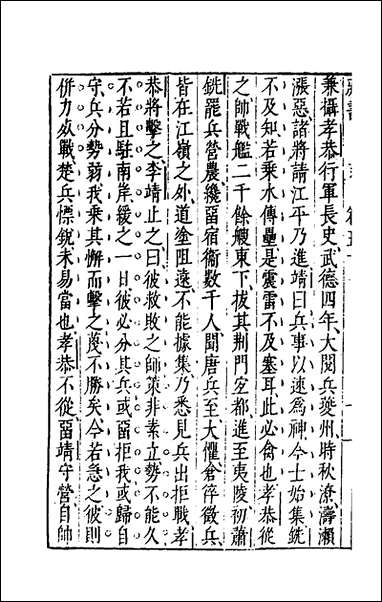 兼攝孝恭行軍長史武德四年大閱兵夔州時秋潦濤瀨
漲惡諸將請江平乃進靖曰兵事以速為神今士始集銑
不及知若乘水傳壘是震雷不及塞耳此必禽也孝恭從
之師戰艦二千餘艘東下拔其荆門宜都進至夷陵初蕭
銑罷兵營農纔畱宿衞數千人聞唐兵至大懼倉卒徵兵
皆在江嶺之外道塗阻遠不能據集乃悉見兵出拒戰孝
恭將擊之李靖止之曰彼救敗之師策非素立勢不能久
不若且駐南岸緩之一日彼必分其兵或畱拒我或歸自
守兵分勢弱我乘其懈而擊之蔑不勝矣今若急之彼則
併力死戰楚兵慓銳未易當也孝恭不從畱靖守營自帥